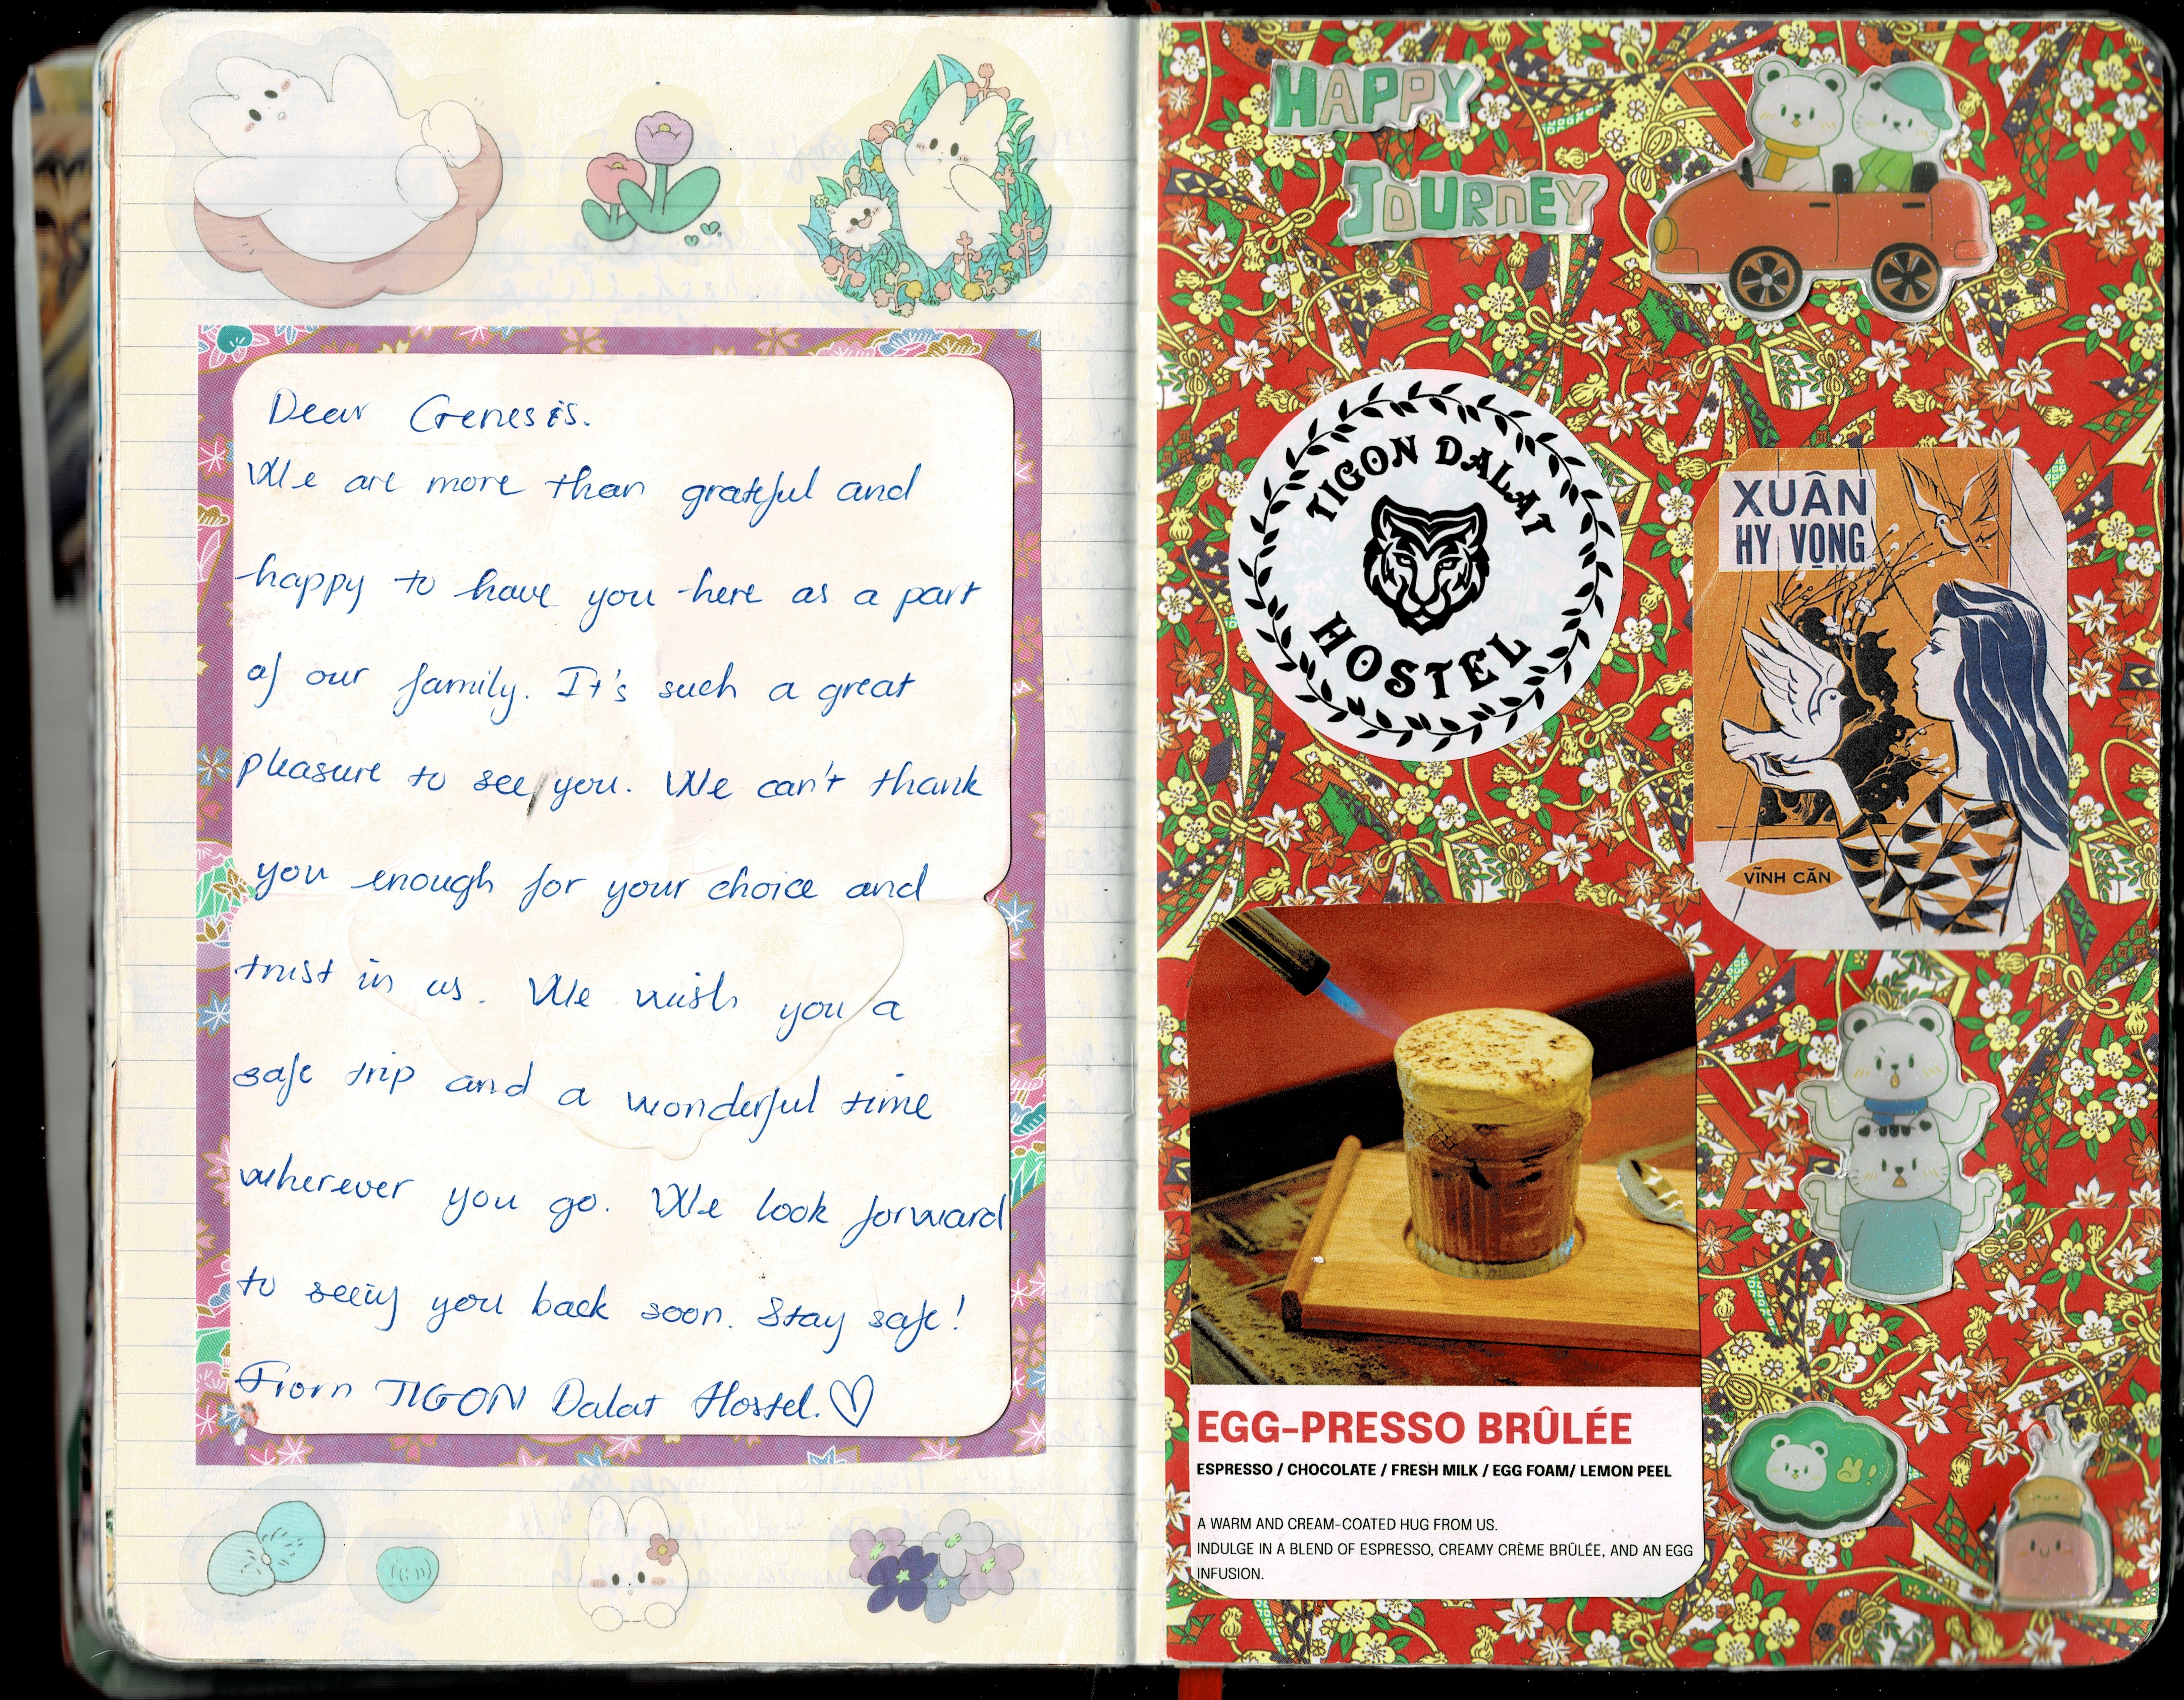 Dear Genesis.
We are more than grateful and
happy to have you here as a part
of our family. It's such a great
pleasure to see/you. We can't thank
you enough for your choice and
trust in us. We wish you a
safe trip and a wonderful time
wherever you go. We look forward
to seeing you back soon. Stay safe!
From TIGON Dalat Hostel.
HAPPY
JOURNEY
TIGON DALAT
HOSTEL
XUÂN
HY VỌNG
VĨNH CĂN
EGG-PRESSO BRÛLÉE
ESPRESSO / CHOCOLATE / FRESH MILK / EGG FOAM/ LEMON PEEL
A WARM AND CREAM-COATED HUG FROM US.
INDULGE IN A BLEND OF ESPRESSO, CREAMY CRÈME BRÛLÉE, AND AN EGG
INFUSION.